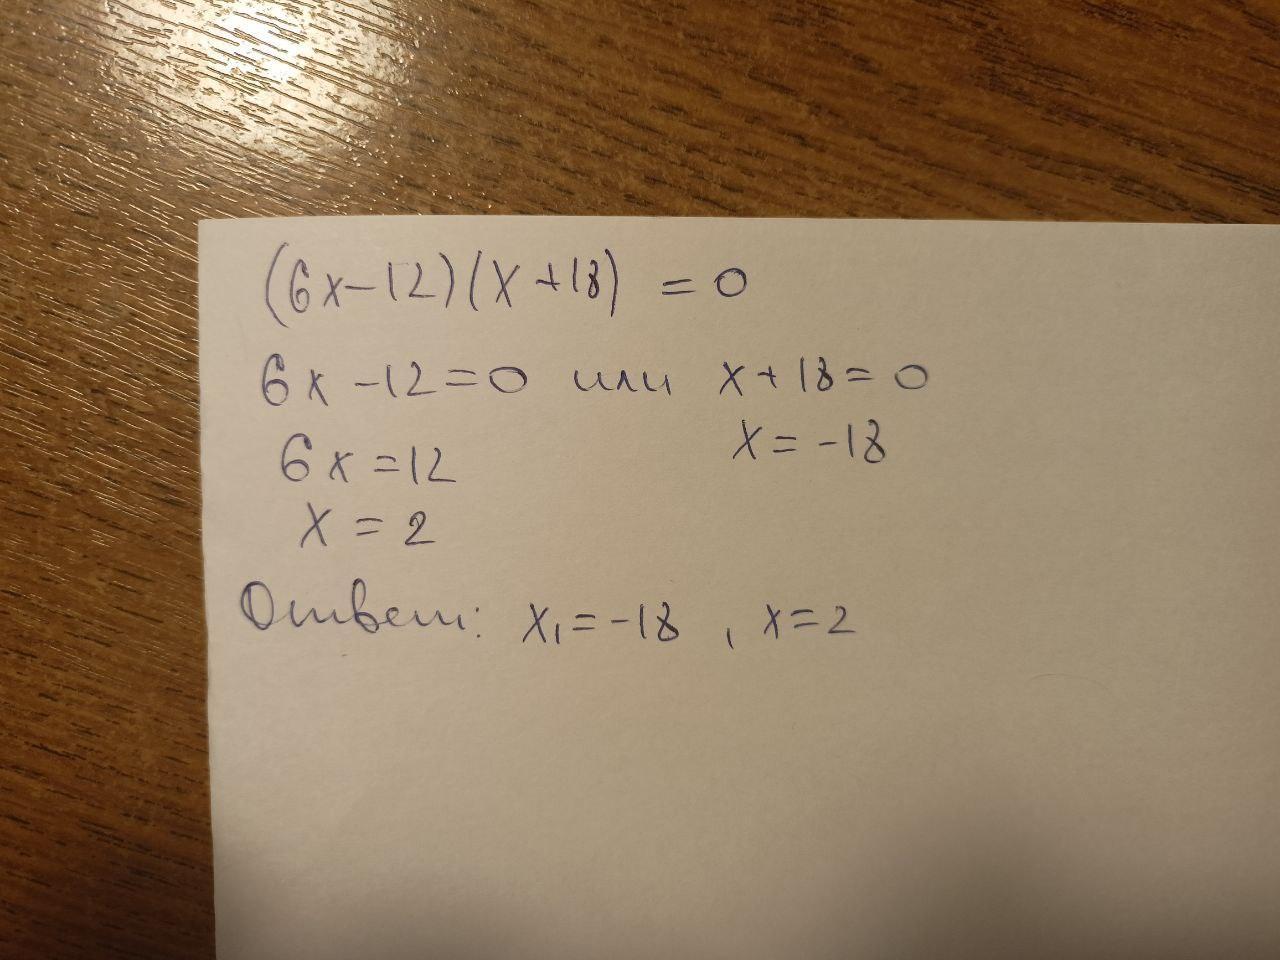 (6x-12)(x+18) = 0
6x-12=0 или x+18=0
6x=12 x=-18
x=2
Ответ: x₁=-18, x=2